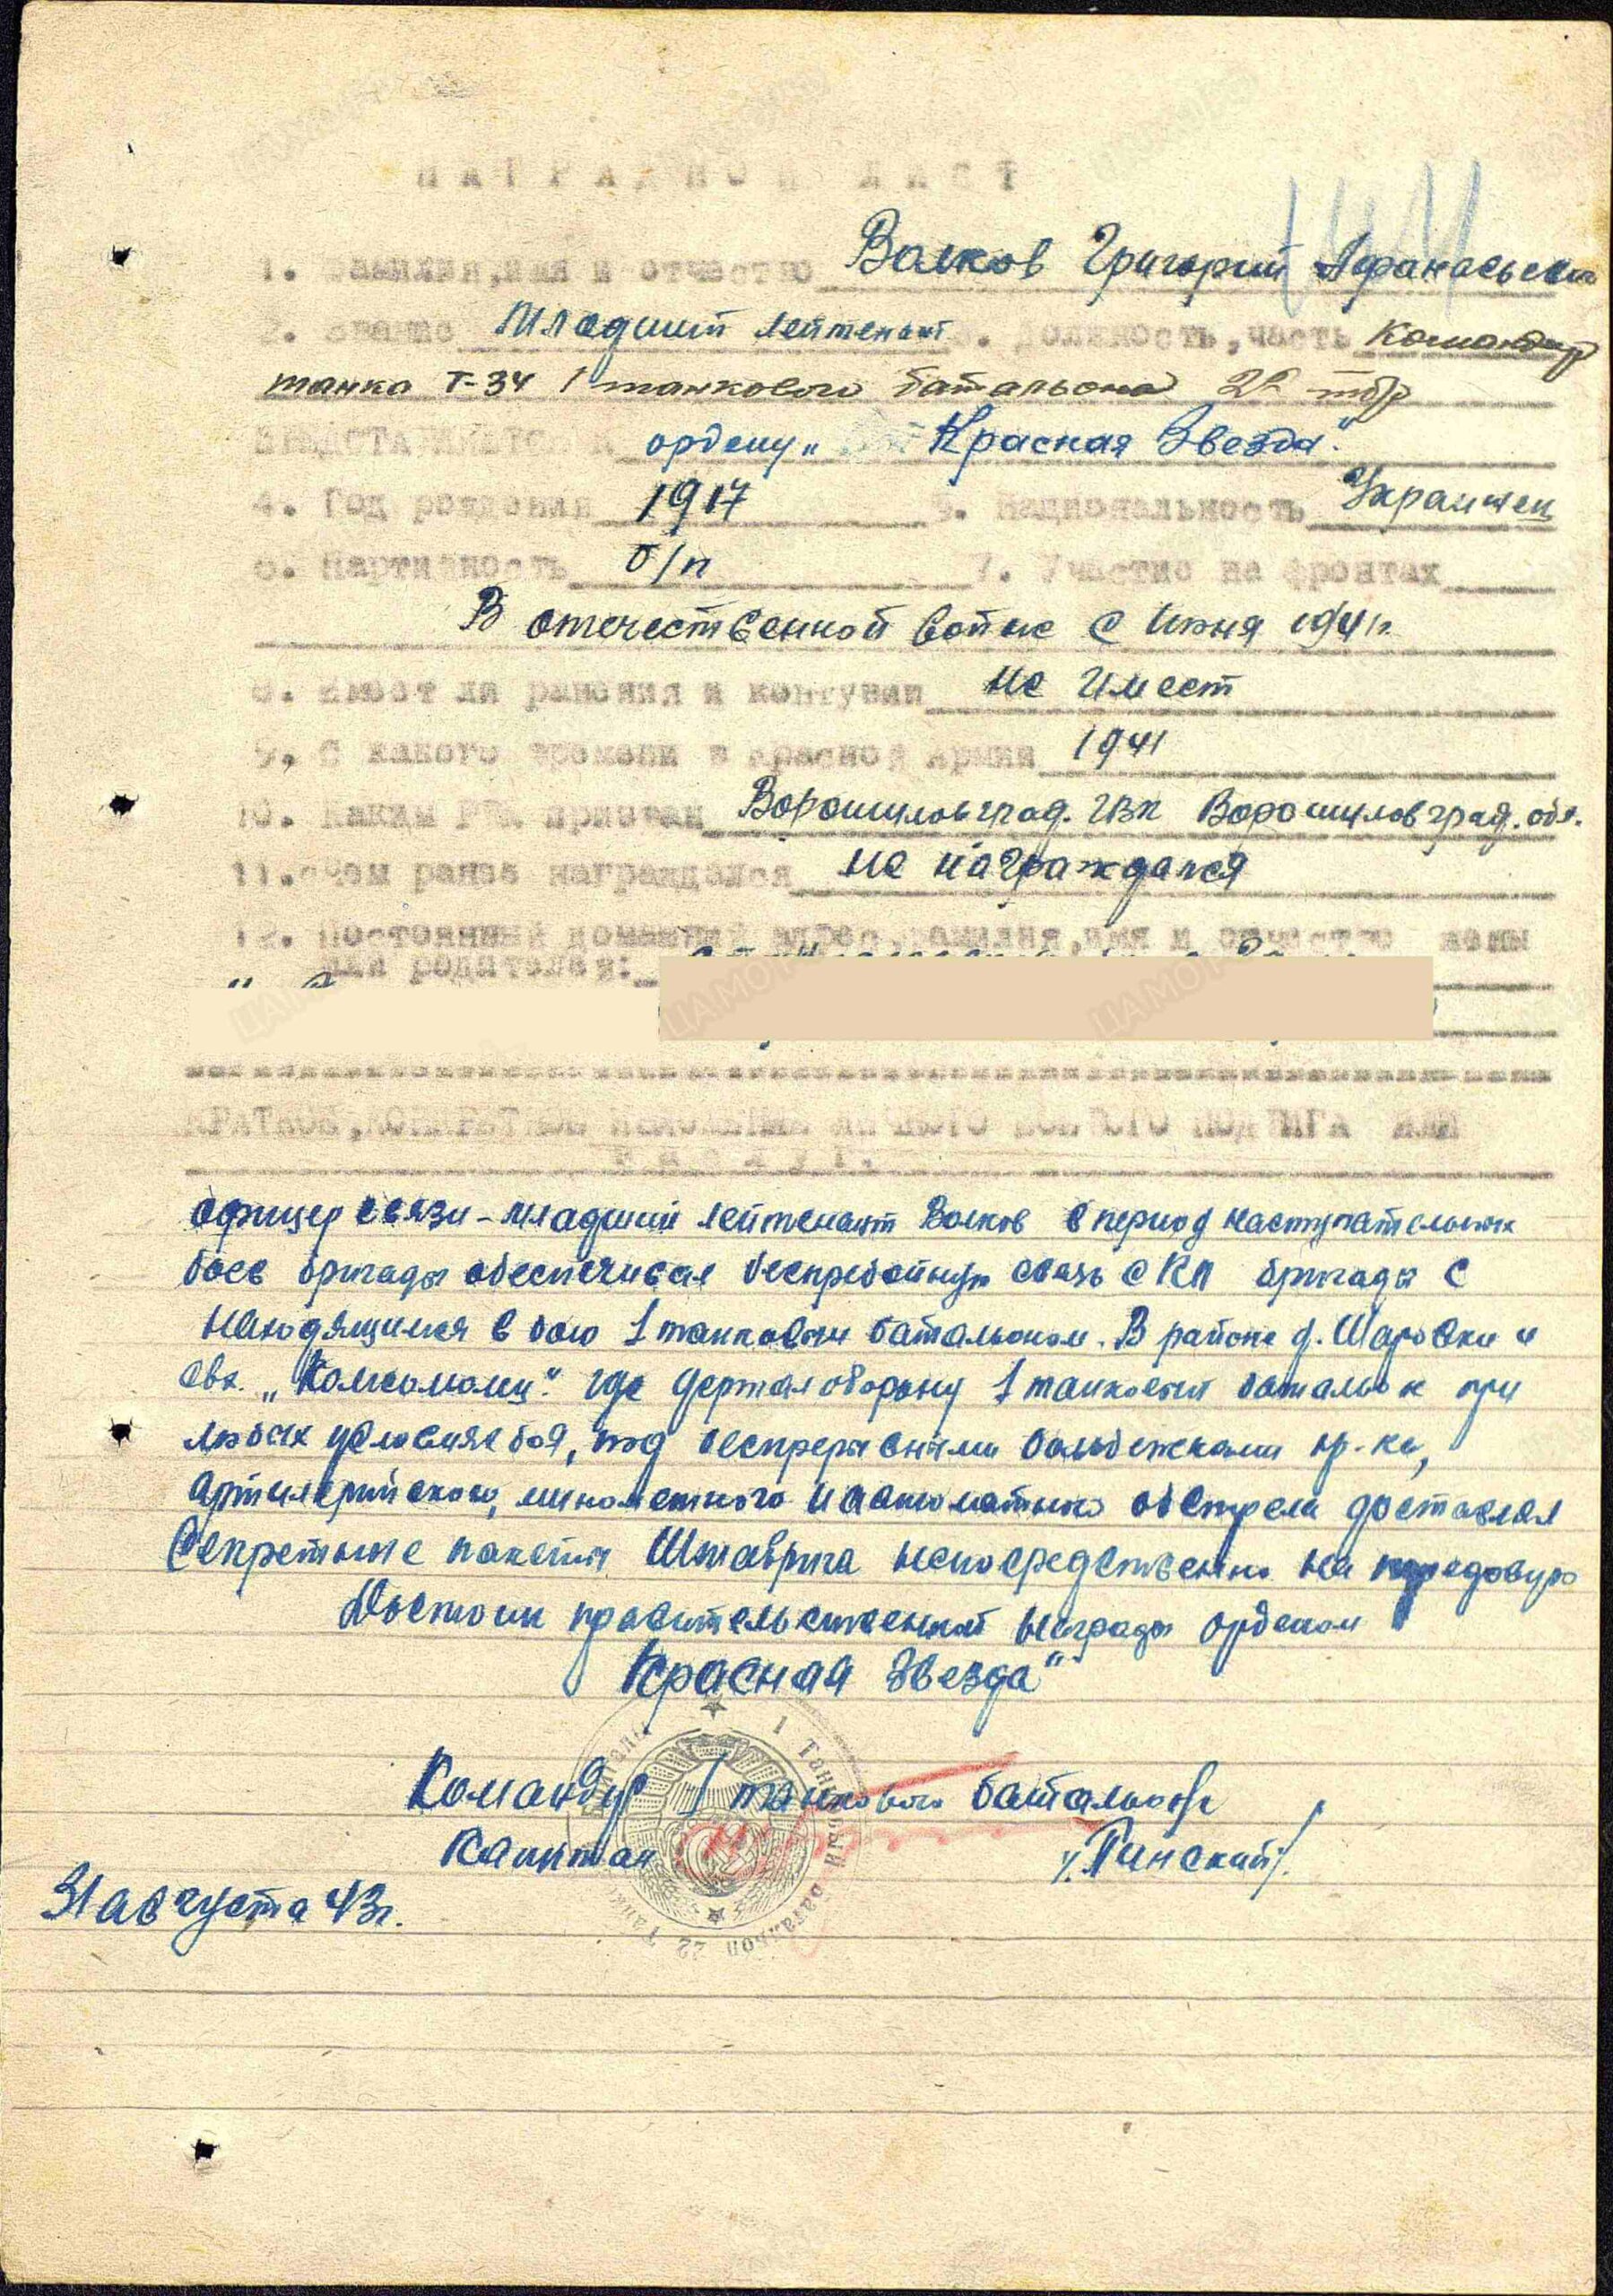 НАГРАДНОЙ ЛИСТ
1. Фамилия, имя и отчество Волков Григорий Афанасьевич
2. Звание Младший лейтенант 3. Должность, часть Командир
танка Т-34 1 танкового батальона 22 тбр
ПРЕДСТАВЛЯЕТСЯ К ордену „Красная Звезда".
4. Год рождения 1917 5. Национальность Украинец
6. Партийность б/п 7. Участие на фронтах
В отечественной войне с Июня 1941 г.
8. Имеет ли ранения и контузии не имеет
9. С какого времени в Красной Армии 1941
10. Каким РВК призван Ворошиловград. ГВК Ворошиловград. обл.
11. Чем ранее награждался не награждался
12. Постоянный домашний адрес, фамилия, имя и отчество жены
или родителей:
КРАТКОЕ, КОНКРЕТНОЕ ИЗЛОЖЕНИЕ ЛИЧНОГО БОЕВОГО ПОДВИГА ИЛИ
ЗАСЛУГ.
офицер связи - младший лейтенант Волков в период наступательных
боев бригады обеспечивал бесперебойную связь с КП бригады с
находящимся в бою 1 танковым батальоном. В районе д. Шаровки и
свх. „Комсомолец". где держал оборону 1 танковый батальон при
любых условиях боя, под беспрерывными бомбежками пр-ка,
артилерийского, минометного и автоматного обстрела доставлял
Секретные пакеты Штабрига непосредственно на передовую
Достоин правительственной награды орденом
Красная Звезда"
Командир 1 танкового батальона
Капитан /Гинский/.
31 августа 43 г.
1 Танковый батальон 22 Танк. бригады
ЦАМО РФ